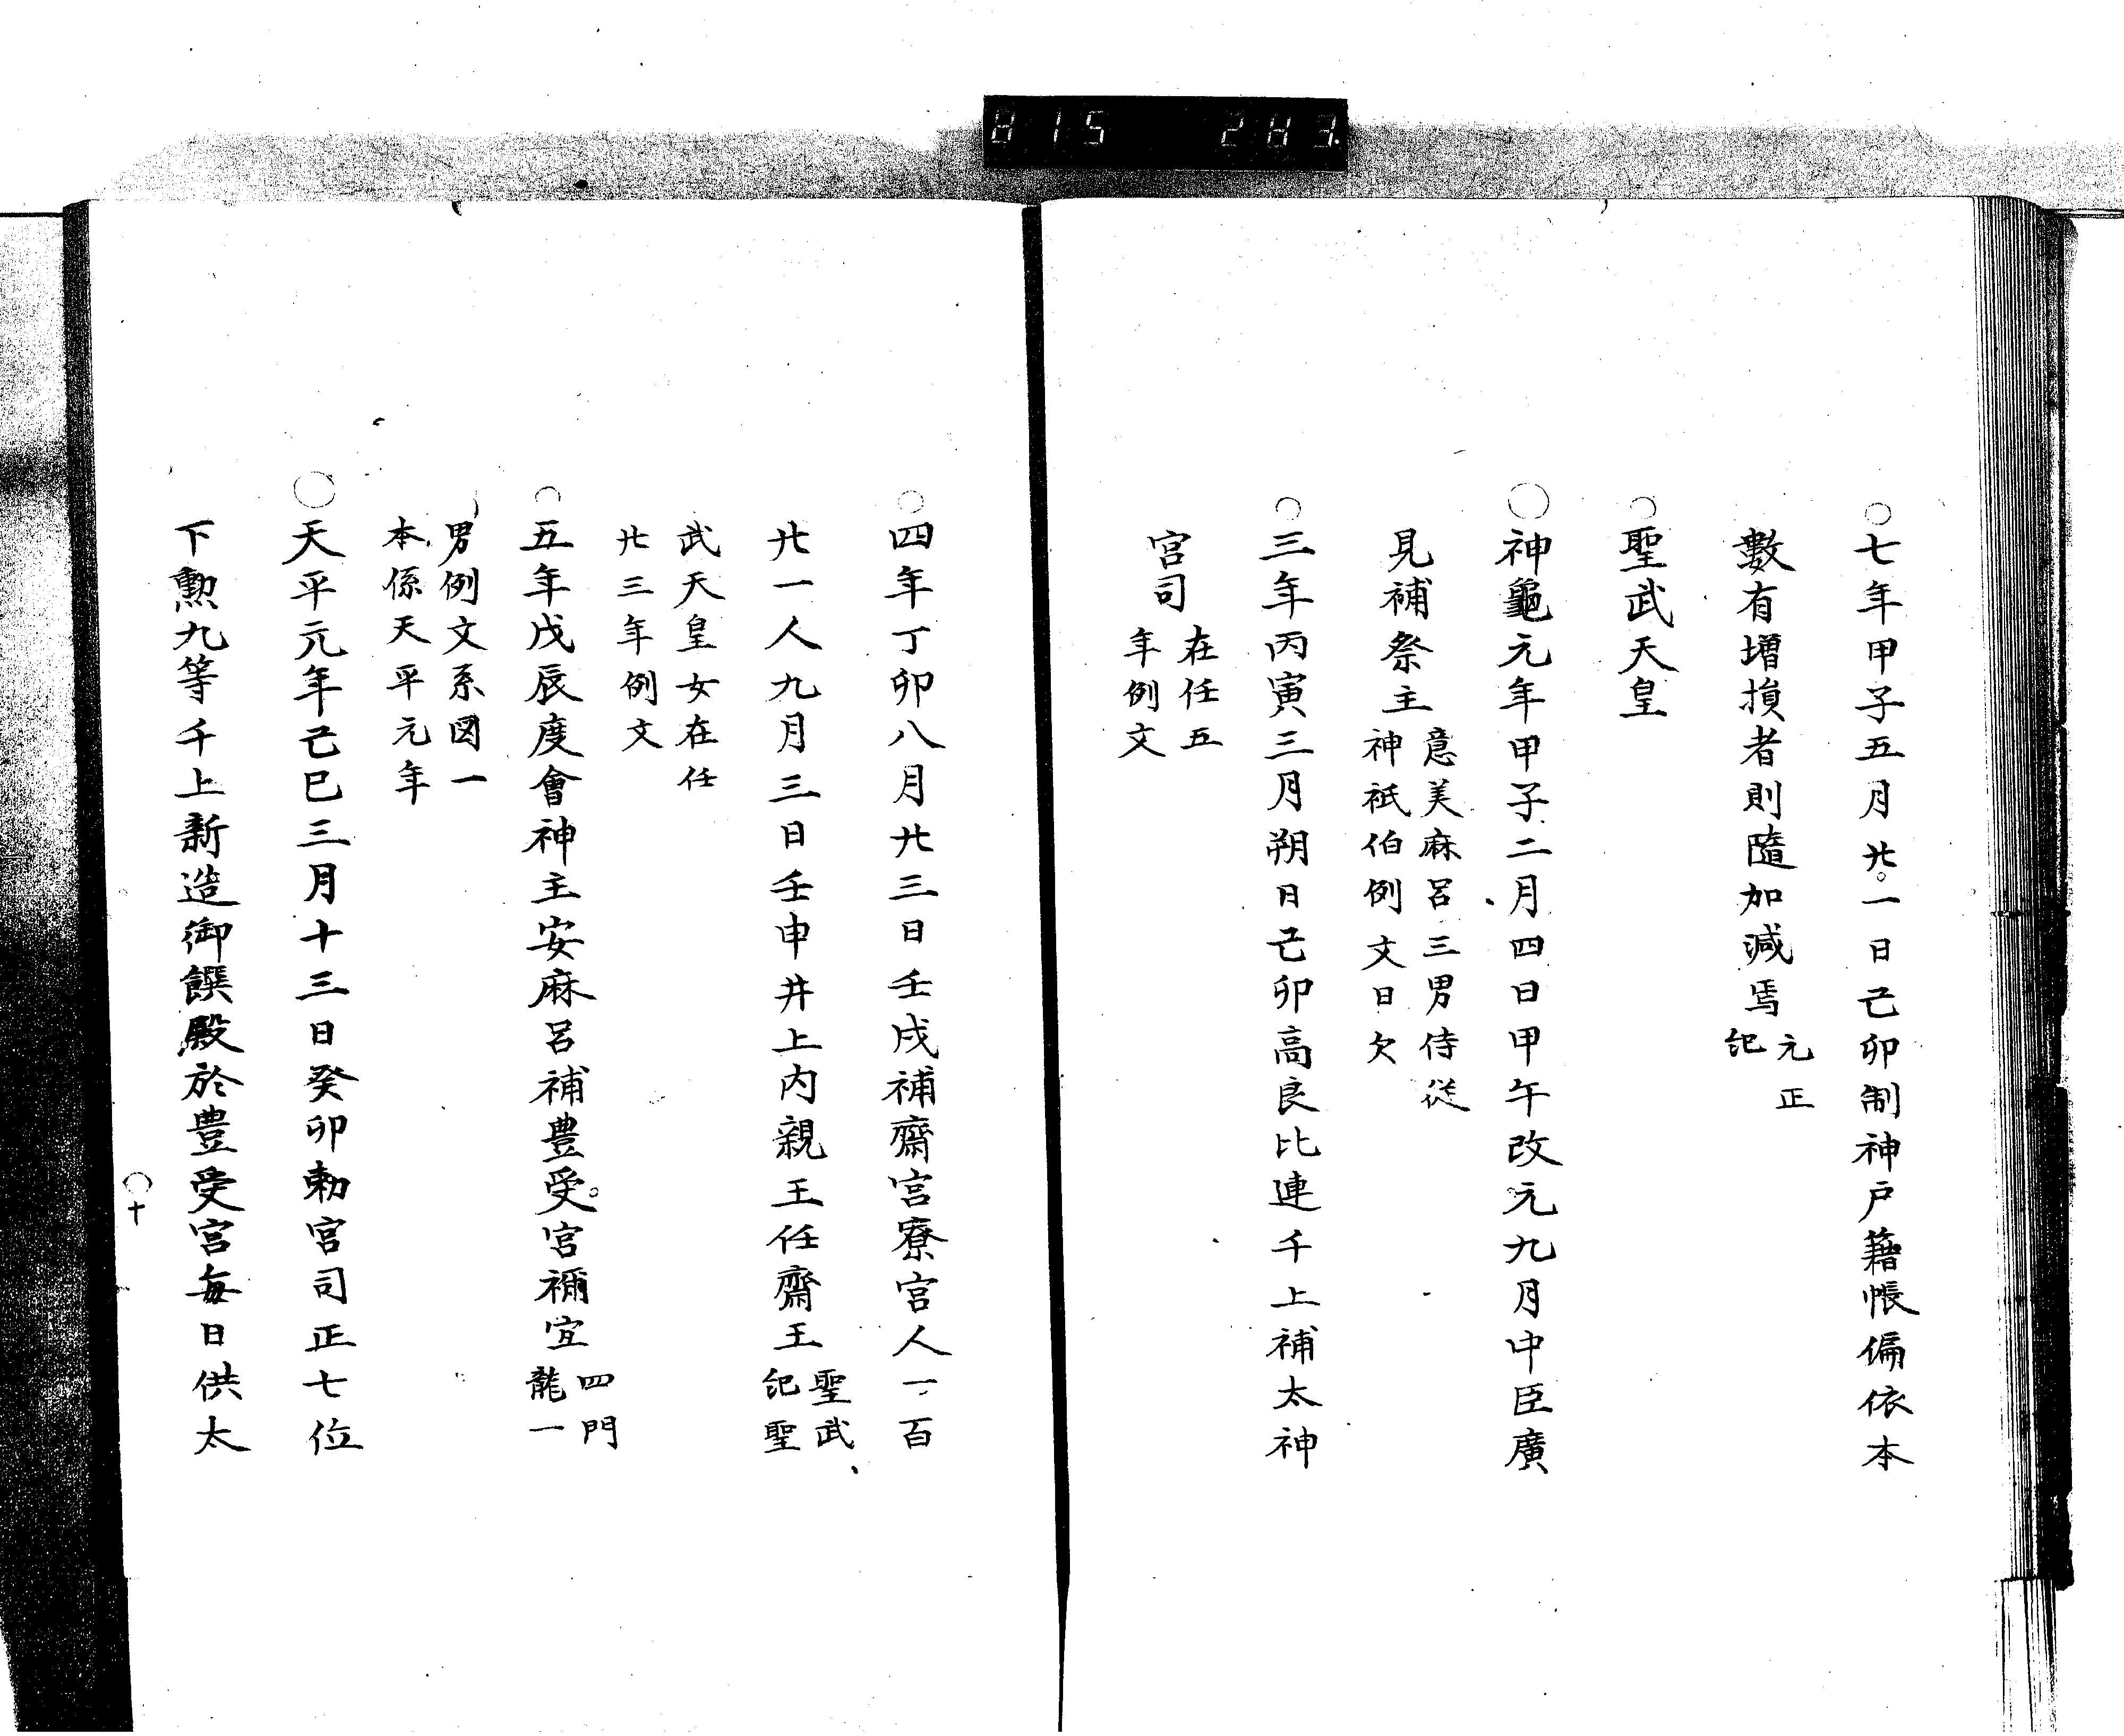 815 243
○七年甲子五月廿一日己卯制神戸籍帳偏依本
數有増損者則隨加減焉元正
紀
○聖武天皇
○神龜元年甲子二月四日甲午改元九月中臣廣
見補祭主意美麻呂三男侍従
神祇伯例文日欠
○三年丙寅三月朔日己卯高良比連千上補太神
宮司在任五
年例文
○四年丁卯八月廿三日壬戌補齋宮寮宮人一百
廿一人九月三日壬申井上内親王任齋王聖武
紀聖
武天皇女在任
廿三年例文
○五年戊辰度會神主安麻呂補豊受宮禰宜四門
龍一
男例文系図一
本係天平元年
○天平元年己巳三月十三日癸卯勅宮司正七位
下勲九等千上新造御饌殿於豊受宮毎日供太
○十